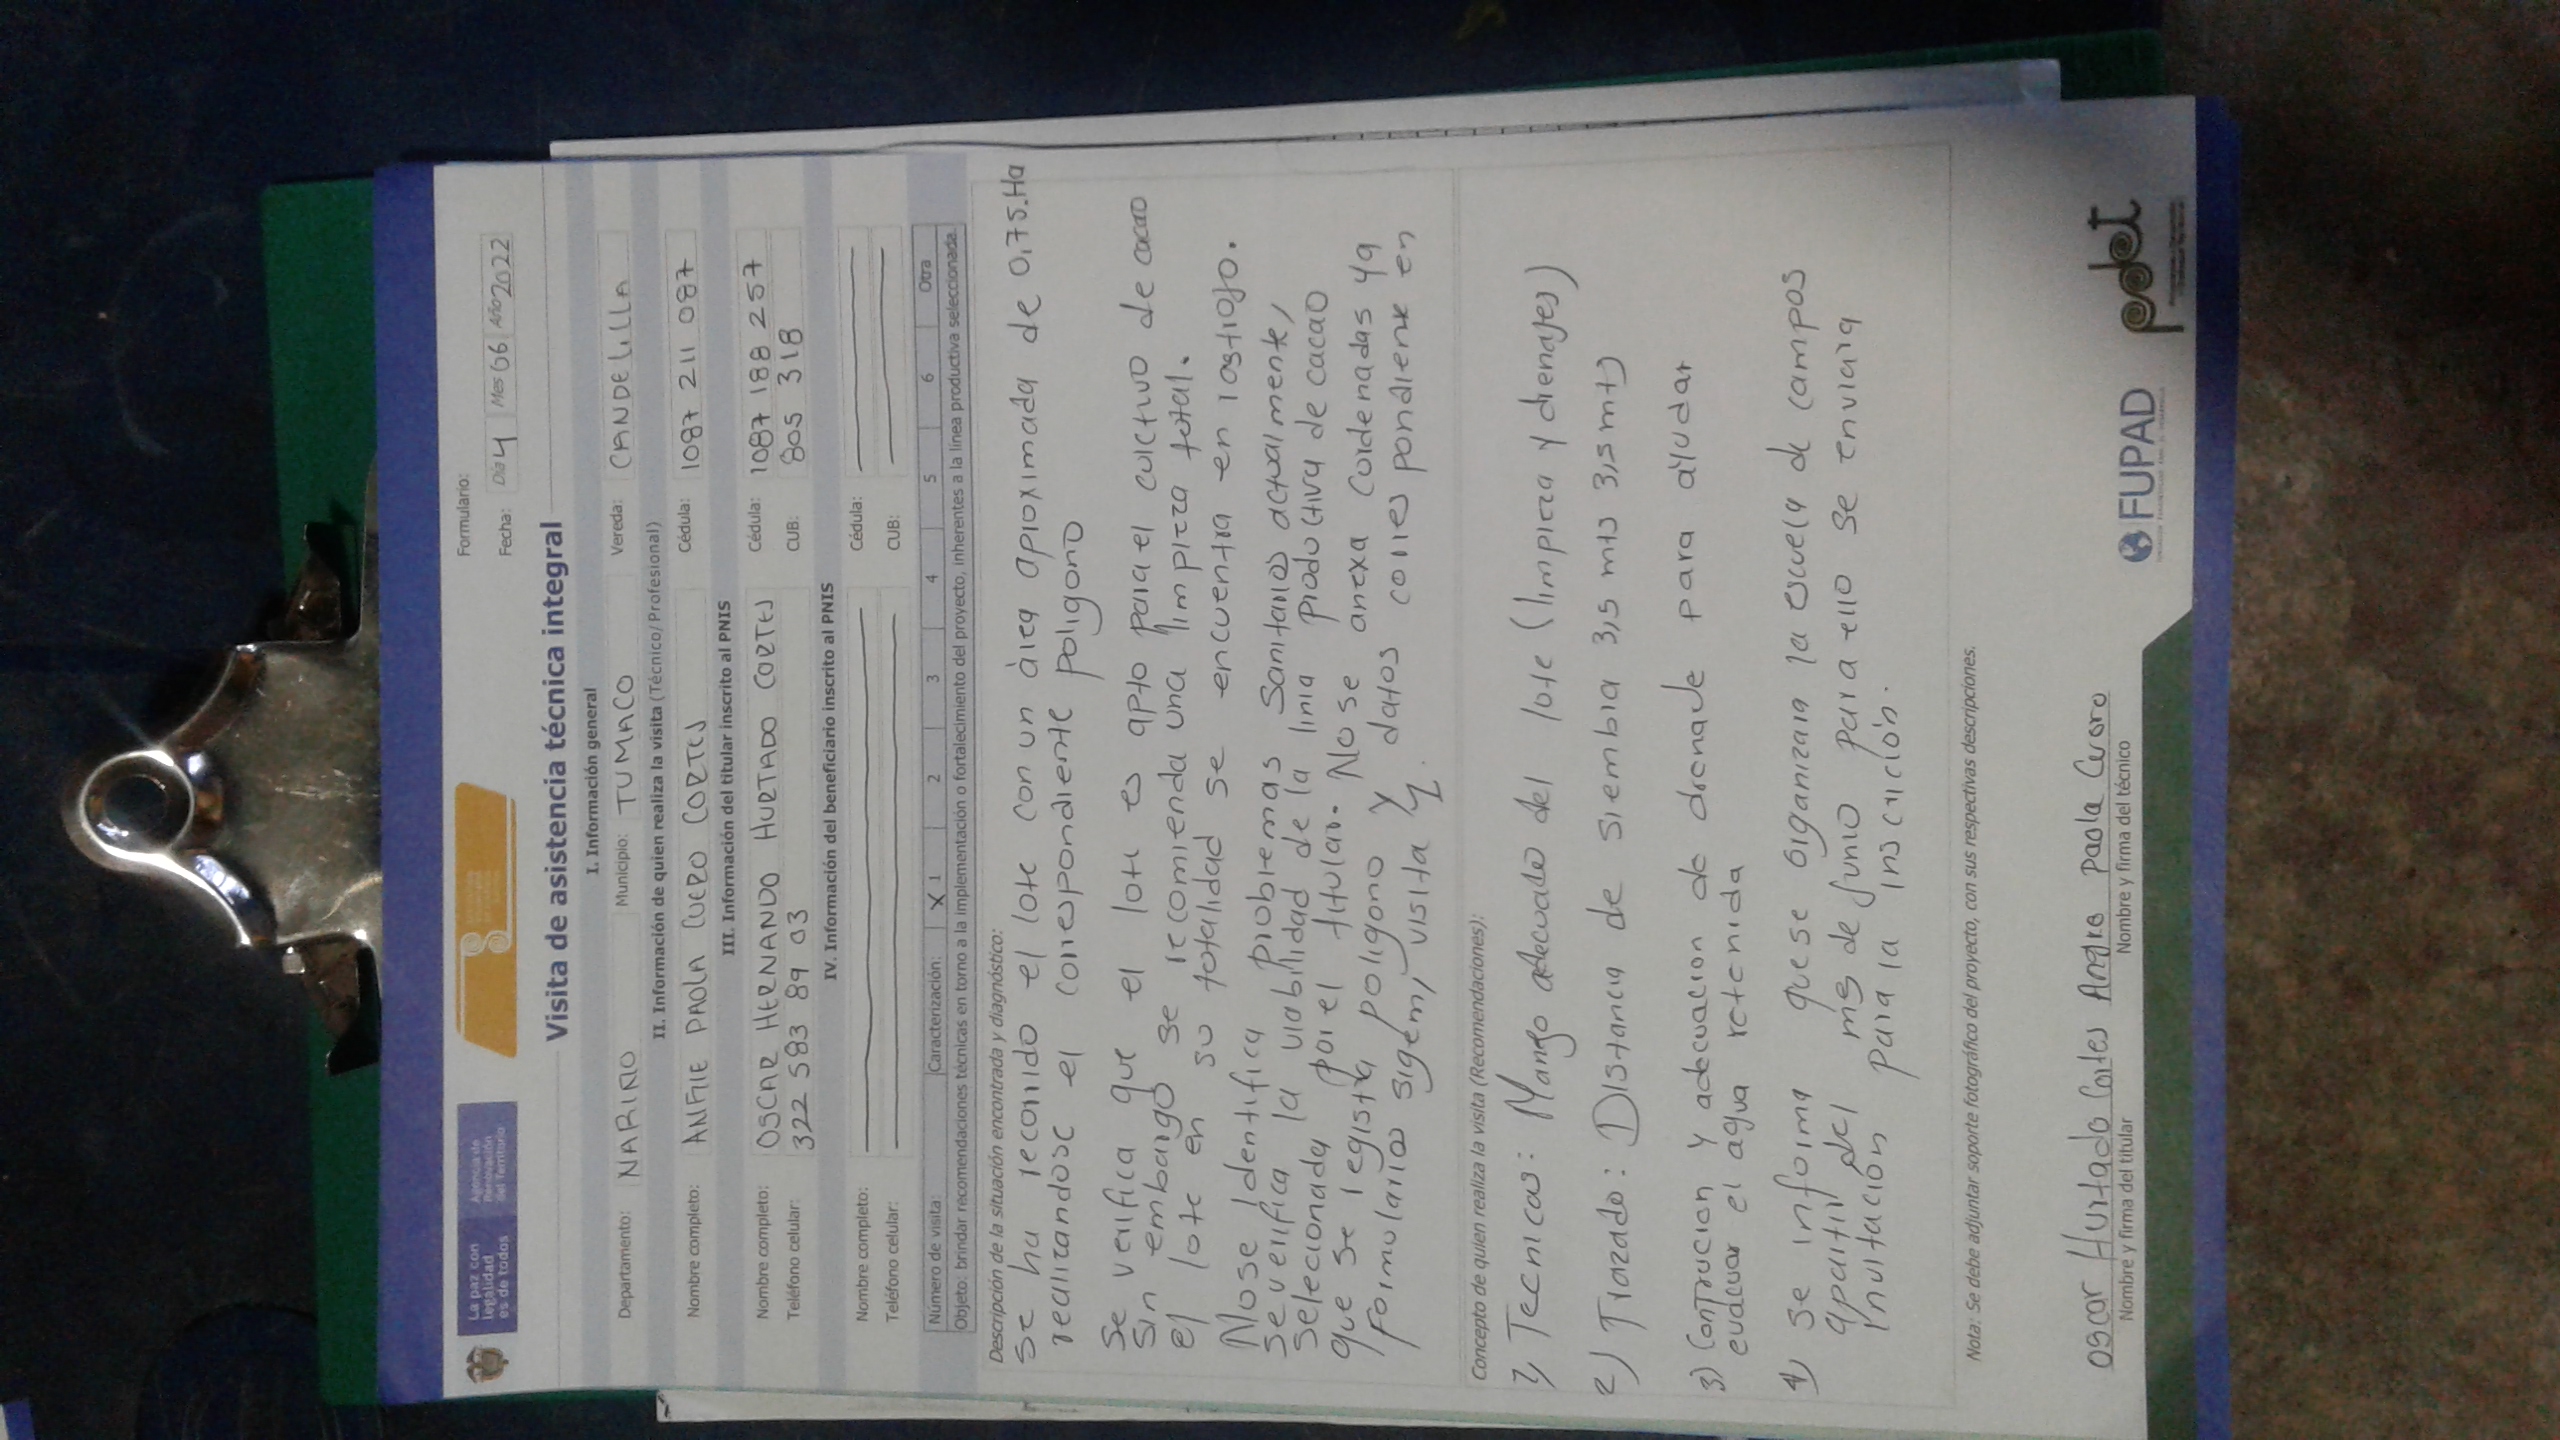 La paz con
legalidad
es de todos
Agencia de
Renovación
del Territorio
Formulario:
Fecha: Día 4 Mes 06 Año 2022
Visita de asistencia técnica integral
I. Información general
Departamento: NARIÑO Municipio: TUMACO Vereda: CANDELILLA
II. Información de quien realiza la visita (Técnico/ Profesional)
Nombre completo: ANGIE PAOLA CUERO CORTES Cédula: 1087 211 087
III. Información del titular inscrito al PNIS
Nombre completo: OSCAR HERNANDO HURTADO CORTES Cédula: 1087 188 257
Teléfono celular: 322 583 89 03 CUB: 805 318
IV. Información del beneficiario inscrito al PNIS
Nombre completo: Cédula:
Teléfono celular: CUB:
Número de visita: Caracterización: X 1 2 3 4 5 6 Otra
Objeto: brindar recomendaciones técnicas en torno a la implementación o fortalecimiento del proyecto, inherentes a la línea productiva seleccionada.
Descripción de la situación encontrada y diagnóstico:
Se ha recorrido el lote con un àrea aproximada de 0,75.Ha
realizandose el correspondiente poligono
Se verifica que el lote es apto para el cultivo de cacao
Sin embargo se recomienda una limpieza total.
el lote en su totalidad se encuentra en rastrojo.
No se identifica problemas Sanitarios actualmente,
se verifica la viabilidad de la linia productiva de cacao
Seleccionada por el titular. No se anexa Cordenadas ya
que se registra poligono y datos correspondiente en
Formularios sigem, visita 1.
Concepto de quien realiza la visita (Recomendaciones):
1) Tecnicas: Manejo adecuado del lote (limpieza y drenajes)
2) Trazado: Distancia de Siembra 3,5 mts 3,5 mts
3) Contrucion y adecuacion de drenaje para àyudar
evacuar el agua retenida
4) se informa que se organizara la escuela de Campos
apartir del mes de Junio para ello se enviara
invitación para la inscrición.
Nota: Se debe adjuntar soporte fotográfico del proyecto, con sus respectivas descripciones.
oscar Hurtado Cortes Angie Paola Cuero
Nombre y firma del titular Nombre y firma del técnico
FUPAD
pdet